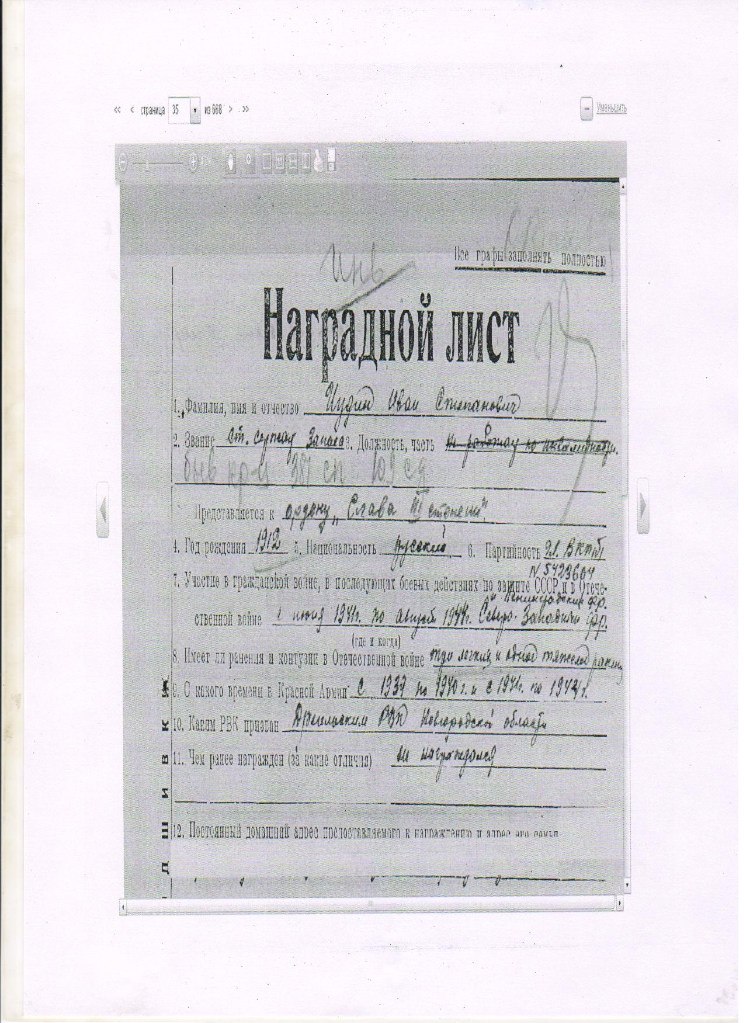 << < страница 35 из 668 > >>
Уменьшить
Все графы заполнять полностью
Инв
Наградной лист
1. Фамилия, имя и отчество Иудин Иван Степанович
2. Звание Ст. сержант запаса 3. Должность, часть не работает по инвалидности.
быв 381 сп 109 сд
Представляется к ордену „Слава III степени".
4. Год рождения 1912 5. Национальность русский 6. Партийность чл. ВКП(б)
N 5423604
7. Участие в гражданской войне, в последующих боевых действиях по защите СССР и в Отече-
Ленинградский фр.
ственной войне с июня 1941г. по август 1944г. Северо-Западный фр.
(где и когда)
8. Имеет ли ранения и контузии в Отечественной войне три легких и одно тяжелое
9. С какого времени в Красной Армии с 1937 по 1940 г. и с 1941г. по 1944 г.
10. Каким РВК призван РВК Новгородской области
11. Чем ранее награжден (за какие отличия) не награждался
12. Постоянный домашний адрес представляемого к награждению и адрес его семьи